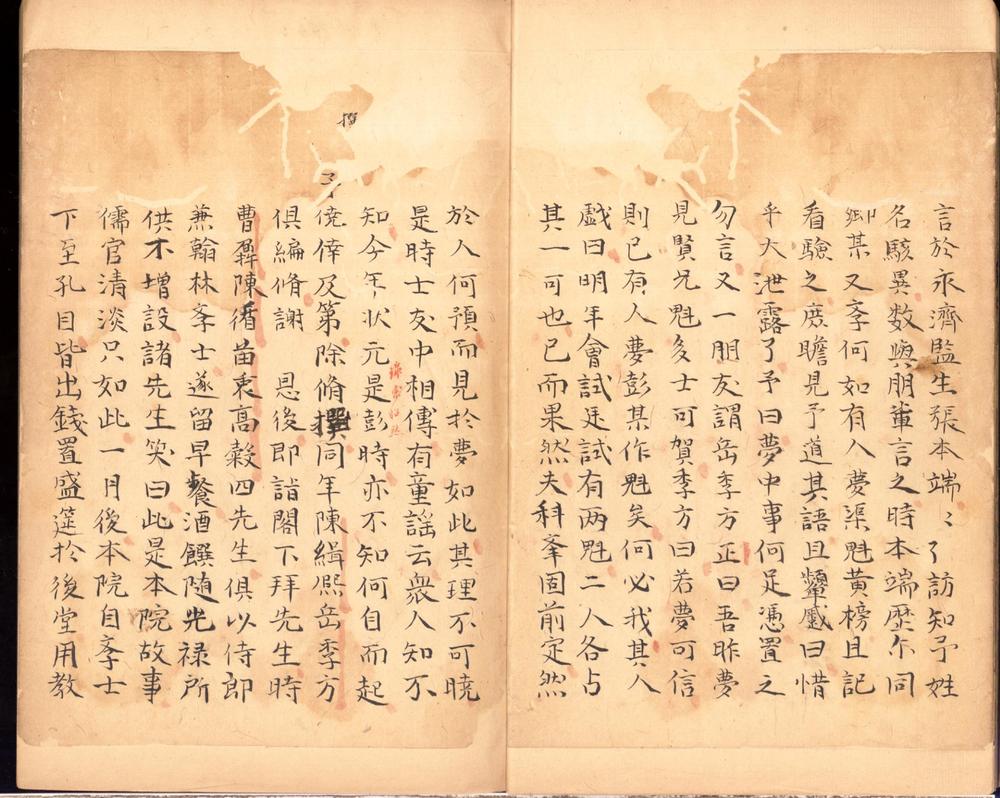 言於永濟監生張本端〻了訪知予姓
名駭異数與朋輩言之時本端歷亦同
卿某又李何如有人夢渠魁黃榜且記
看驗之庶瞻見予道其語且顰蹙曰惜
乎大泄露了予曰夢中事何足憑置之
勿言又一朋友謂岳季方正曰吾昨夢
見賢兄魁多士可賀季方曰若夢可信
則已有人夢彭某作魁矣何必我其人
戲曰明年會試廷試有两魁二人各占
其一可也已而果然夫科峯固前定然
於人何預而見於夢如此其理不可曉
是時士友中相傳有童謡云衆人知不
知今年状元是彭時亦不知何自而起
予僥倖及第除脩撰同年陳緝熈岳季方
俱編脩謝 恩後即詣閣下拜先生時
曹鼐陳循苗衷高糓四先生俱以侍郎
兼翰林李士遂留早餐酒饌随光禄所
供不增設諸先生笑曰此是本院故事
儒官清淡只如此一月後本院自李士
下至孔目皆出錢置盛筵於後堂用教
撰